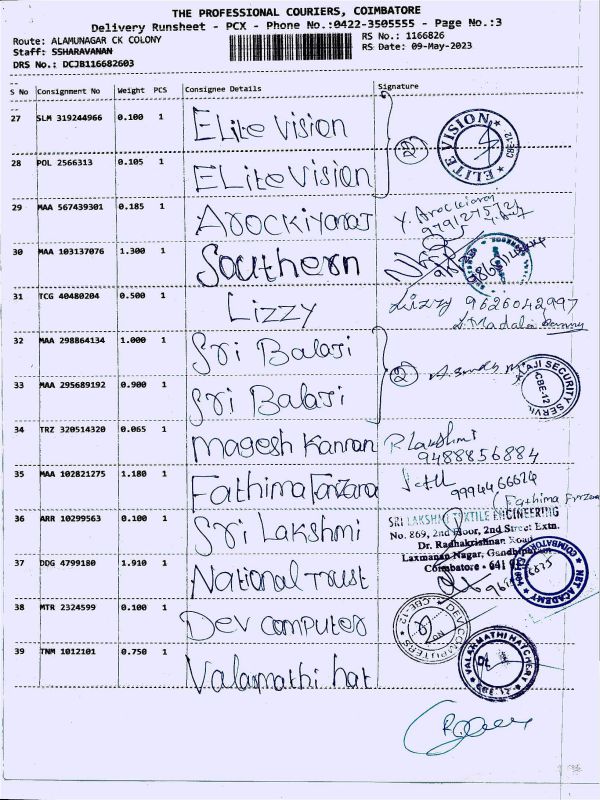 THE PROFESSIONAL COURIERS, COIMBATORE
Delivery Runsheet - PCX - Phone No.:0422-3505555 - Page No.:3
Route: ALAMUNAGAR CK COLONY
RS No.: 1166826
Staff: SSHARAVANAN
RS Date: 09-May-2023
DRS No.: DCJB116682603
S No Consignment No Weight PCS Consignee Details Signature
27 SLM 319244966 0.100 1 ELite Vision
28 POL 2566313 0.105 1 ELite Vision
② ELITE VISION CBE-12
29 MAA 567439301 0.185 1 Arockiyaraj Y. Arockiaraj
30 MAA 103137076 1.300 1 Southern
31 TCG 40480204 0.500 1 Lizzy Lizzy 9626042997
32 MAA 298864134 1.000 1 Sri Balaji
33 MAA 295689192 0.900 1 Sri Balaji
② BALAJI SECURITY SERVI CBE-12
34 TRZ 320514320 0.065 1 Magesh Kannan R Lakshmi
9488856884
35 MAA 102821275 1.180 1 Fathima Farzana
9994466624
(Fathima Farzana
36 ARR 10299563 0.100 1 Sri Lakshmi
SRI LAKSHMI TEXTILE ENGINEERING
No. 869, 2nd Floor, 2nd Street Extn.
Dr. Radhakrishnan Road
Laxmanan Nagar, Gandhipuram
Coimbatore - 641
37 DDG 4799180 1.910 1 National Trust
NET ACADEMY COIMBATORE
38 MTR 2324599 0.100 1 Dev computer
DEV COMPUTERS CBE-12
39 TNM 1012101 0.750 1 Valarmathi hat
VALARMATHI HATCHERY